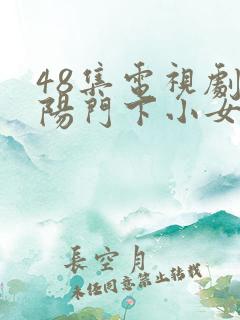 48集電視劇
陽門下小女
長空月
未經同意禁止轉載